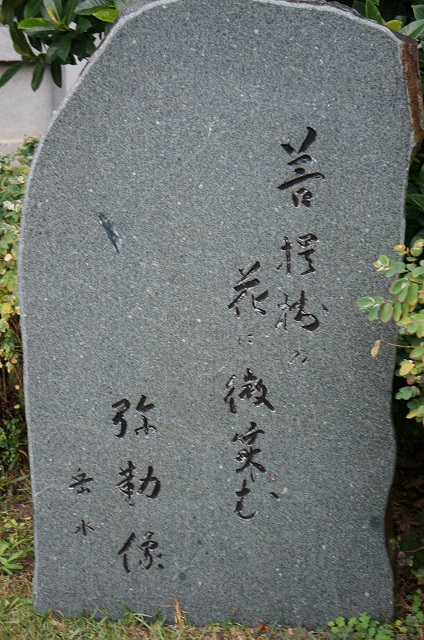 菩提樹の
花に微笑む
弥勒像
岳水